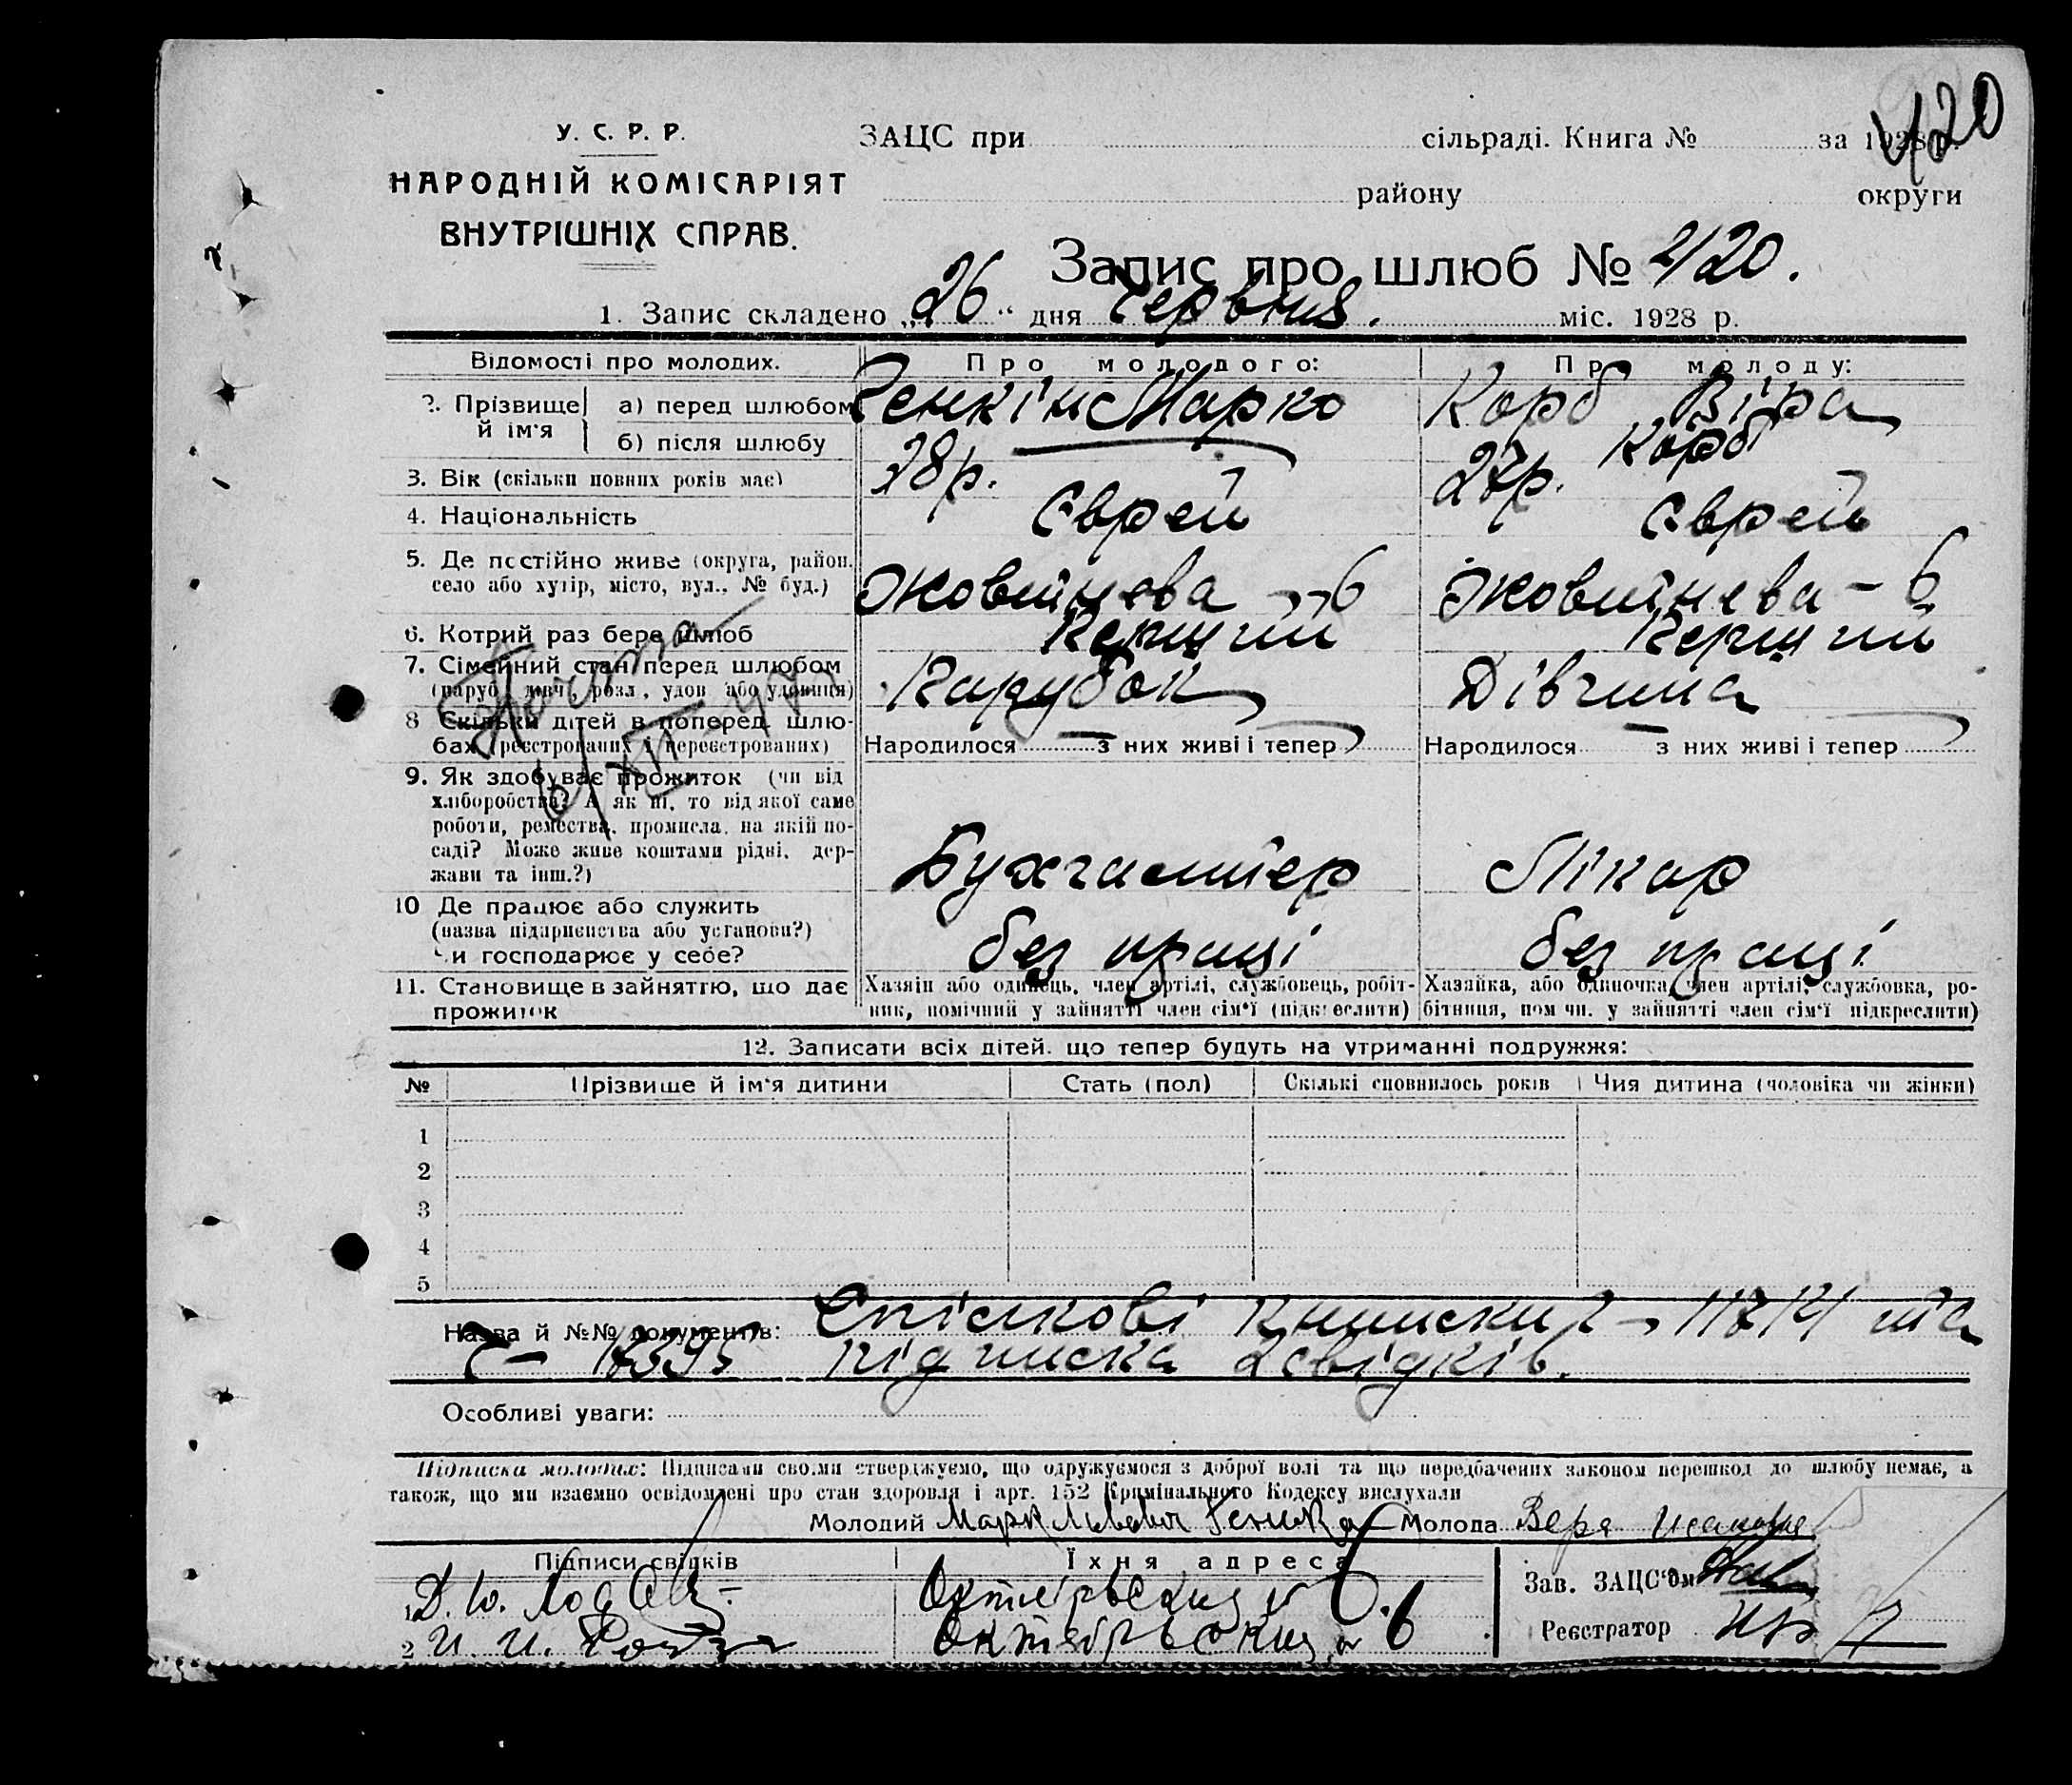 420
У. С. Р. Р.
НАРОДНІЙ КОМІСАРІЯТ
ВНУТРІШНІХ СПРАВ.
ЗАЦС при сільраді. Книга № за 1928 р.
району округи
Запис про шлюб № 420.
1. Запис складено „26“ дня Червня. міс. 1928 р.
Відомості про молодих. Про молодого: Про молоду:
2. Прізвище й ім'я а) перед шлюбом Генкін Марко Корб Віра
б) після шлюбу Корб
3. Вік (скільки повних років має) 28р. 27р.
4. Національність Єврей Єврей
5. Де постійно живе (округа, район, Жовтнева – 6 Жовтнева – 6
село або хутір, місто, вул., № буд.)
6. Котрий раз бере шлюб Перший Перший
7. Сімейний стан перед шлюбом Парубок Дівчина
(паруб., дівч., розл., удов. або удовиця)
8. Скільки дітей в поперед. шлю-
бах (реєстрованих і переєстрованих) Народилося — з них живі і тепер Народилося — з них живі і тепер
9. Як здобуває прожиток (чи від
хліборобства? А як ні, то від якої саме
роботи, ремества, промисла, на якій по-
саді? Може живе коштами рідні, дер-
жави та інш.?) Бухгалтер Лікар
10 Де працює або служить
(назва підприємства або установи?) без праці без праці
Чи господарює у себе?
11. Становище в зайняттю, що дає
прожиток
Хазяїн або одинець, член артілі, службовець, робіт-
ник, помічний у зайнятті член сім'ї (підкреслити)
Хазяйка, або одиночка, член артілі, службовка, ро-
бітниця, пом чн. у зайнятті член сім'ї підкреслити)
12. Записати всіх дітей, що тепер будуть на утриманні подружжя:
№ Прізвище й ім'я дитини Стать (пол) Скількі сповнилось років Чия дитина (чоловіка чи жінки)
1
2
3
4
5
Назва й №№ документів: Спілкові книжки та
підписка 2 свідків.
Особливі уваги:
Підписка молодих: Підписами своїми стверджуємо, що одружуємося з доброї волі та що передбачених законом перешкод до шлюбу немає, а
також, що ми взаємно освідомлені про стан здоровля і арт. 152 Крімінального Кодексу вислухали
Молодий Марк Львович Генкин Молода Вера Исаковна
Підписи свідків Їхня адреса
1 Д. Ю. Октябрьская 6
2 И. И. Октябрьская 6
Зав. ЗАЦС'ом
Реєстратор